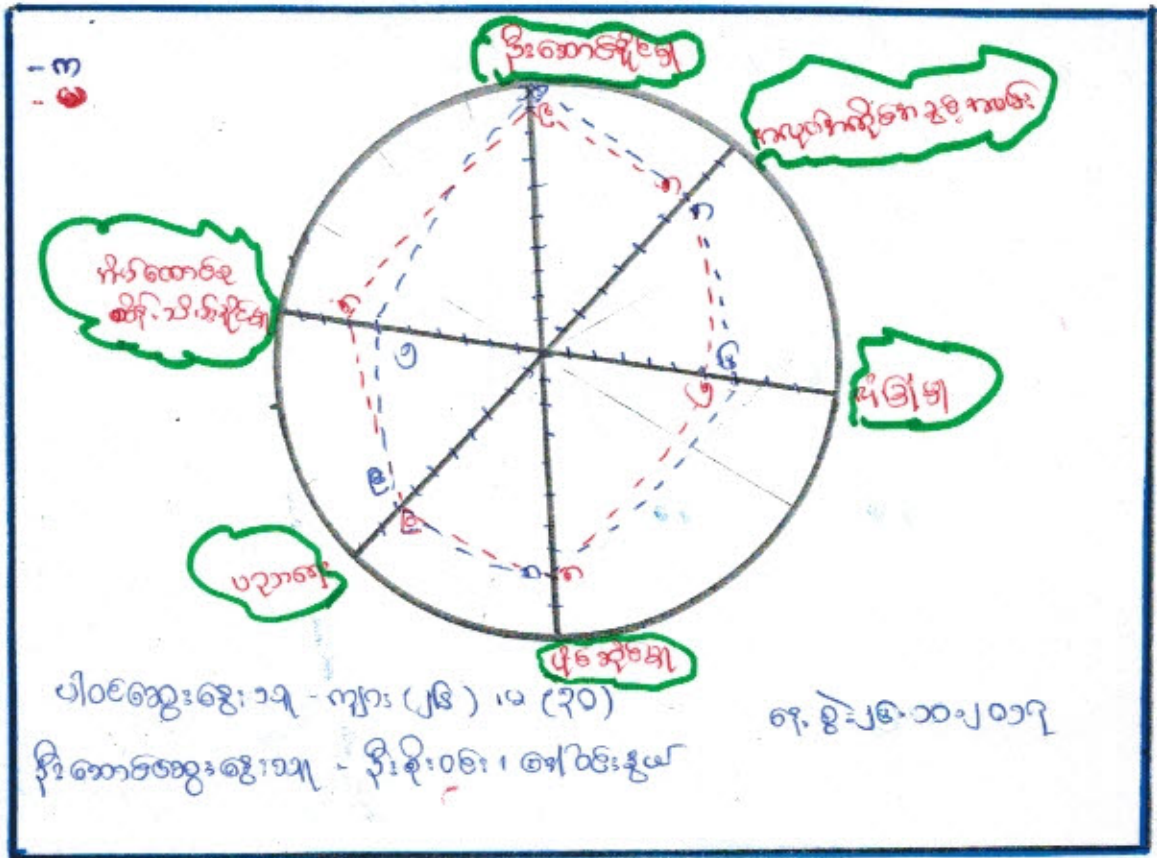 - က
- မ
ဦးဆောင်နိုင်မှု
အလုပ်အကိုင်အခွင့်အလမ်း
အိမ်ထောင်စု
ထိန်းသိမ်းနိုင်မှု
လုံခြုံမှု
ပညာရေး
ပိုင်ဆိုင်မှု
၉
၇
၇
၆
၅
၇
၅
၈
၈
ပါဝင်ဆွေးနွေးသူ - ကျား (၂၆) ၊ မ (၃၀)
ဦးဆောင်ဆွေးနွေးသူ - ဦးစိုးဝင်း ၊ ဒေါ်ဝင်းနွယ်
နေ့စွဲ ၊ ၂၆.၁၀.၂၀၁၇